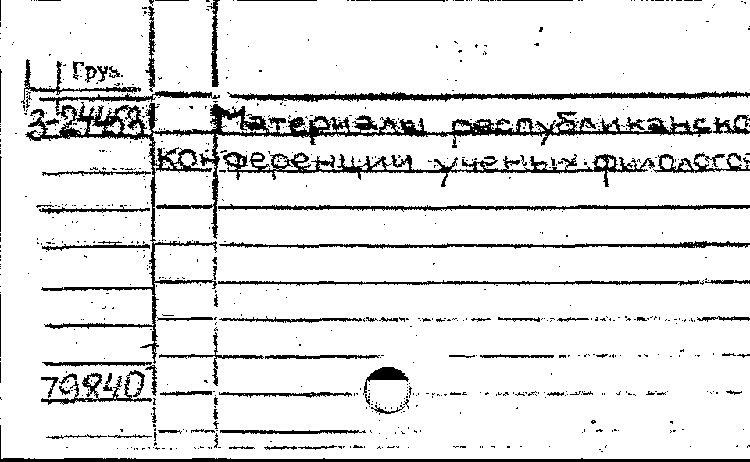 Груз.
3-24453 Материалы республиканско
конференции ученых филологов
79840